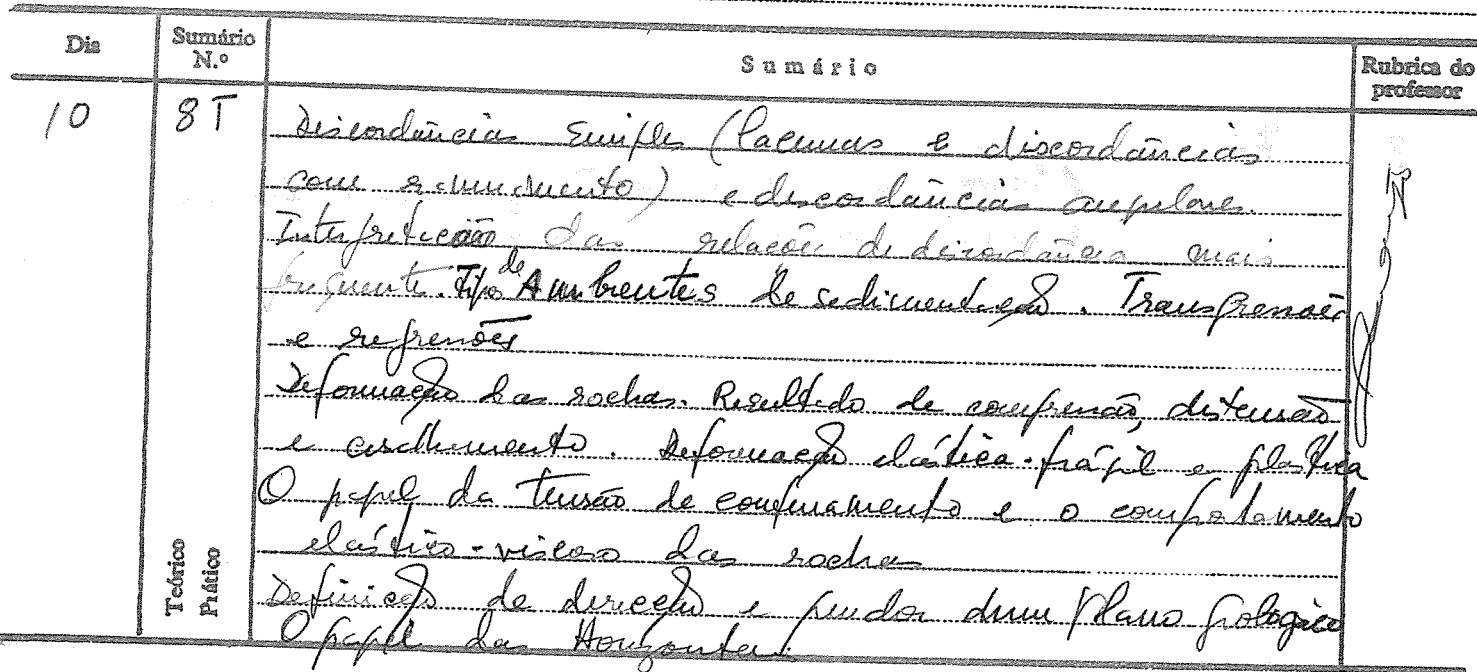 Dia
Sumário N.º
Sumário
Rubrica do professor
10
8T
Discordâncias simples (lacunas e discordâncias
com ) e discordâncias angulares.
Interpretação das relações de discordância mais
frequente. Tipo de Ambientes de sedimentação. Transgressões
e regressões
Deformação das rochas. Resultado de compressão, distensão
e cisalhamento. Deformação elástica-frágil e plástica
O papel da tensão de confinamento e o comportamento
elástico-viscoso das rochas
Definição de direcção e pendor dum plano geológico
O papel das Horizontais.
Teórico
Prático